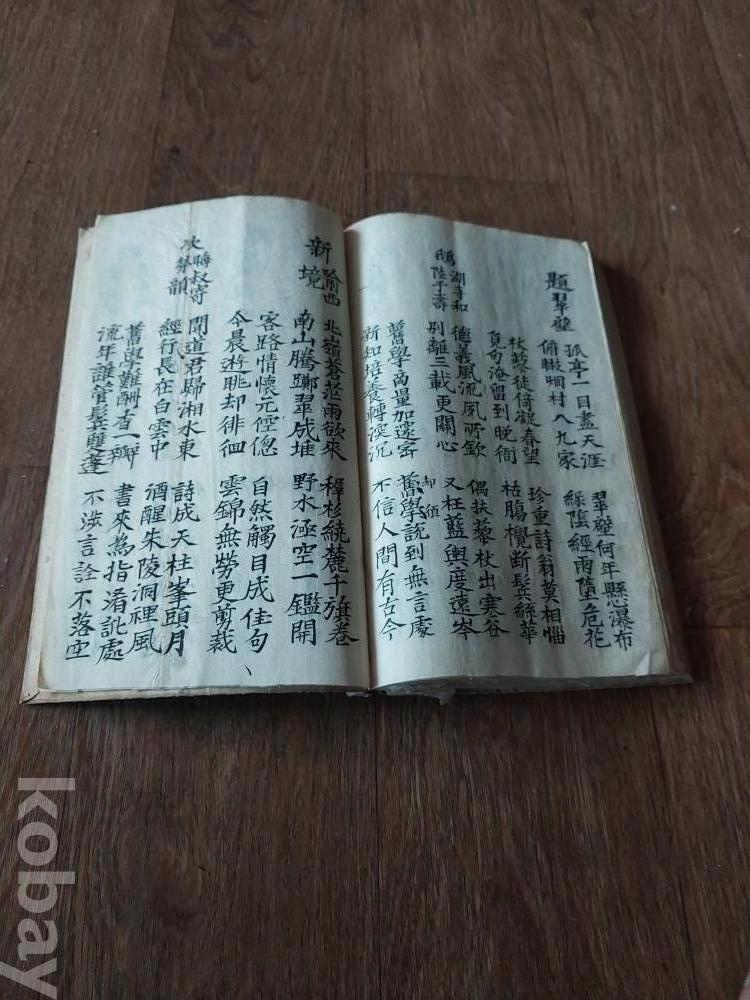 題翠壁
孤亭一目盡天涯 翠壁何年懸瀑布
俯瞰烟村八九家 綠陰經雨墮危花
杖藜徒倚凝春望 珍重詩翁莫相惱
覓句淹留到晚衙 枯腸攪斷鬂絲華
鵝湖寺和
陸子壽
德義風流夙所欽 偶扶藜杖出寒谷
別離三載更關心 又枉藍輿度遠岑
舊學商量加邃密 舊學說到無言處
却須
新知培養轉深沉 不信人間有古今
喻西
新境
北嶺蒼茫雨欲來 稺杉繞麓千旗卷
南山騰擲翠成堆 野水涵空一鑑開
客路情懷元倥偬 自然觸目成佳句
今晨遊眺却徘徊 雲錦無勞更剪裁
次晦叔寄
弟韻
聞道君歸湘水東 詩成天柱峯頭月
經行長在白雲中 酒醒朱陵洞裡風
舊學難酬香一瓣 書來為指淆訛處
流年誰管鬂雙蓬 不涉言詮不落空
kobay